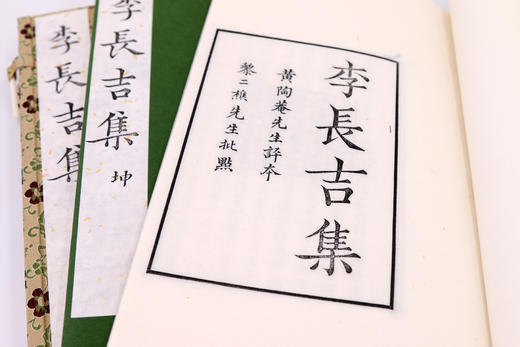 李長吉集
李長吉集
坤
李長吉集
黄陶菴先生評本
黎二樵先生批點